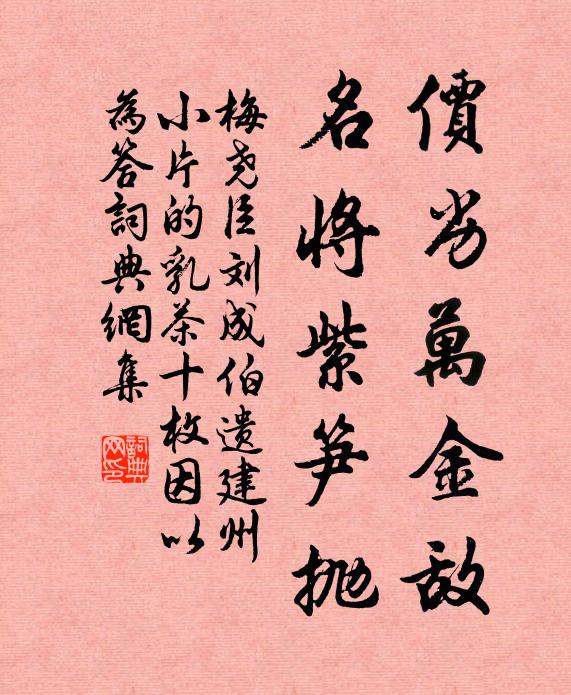 價劣萬金敵
名將紫笋抛
梅尧臣刘成伯遗建州
小片的乳茶十枚因以
為答詞典網集
詞典
网印